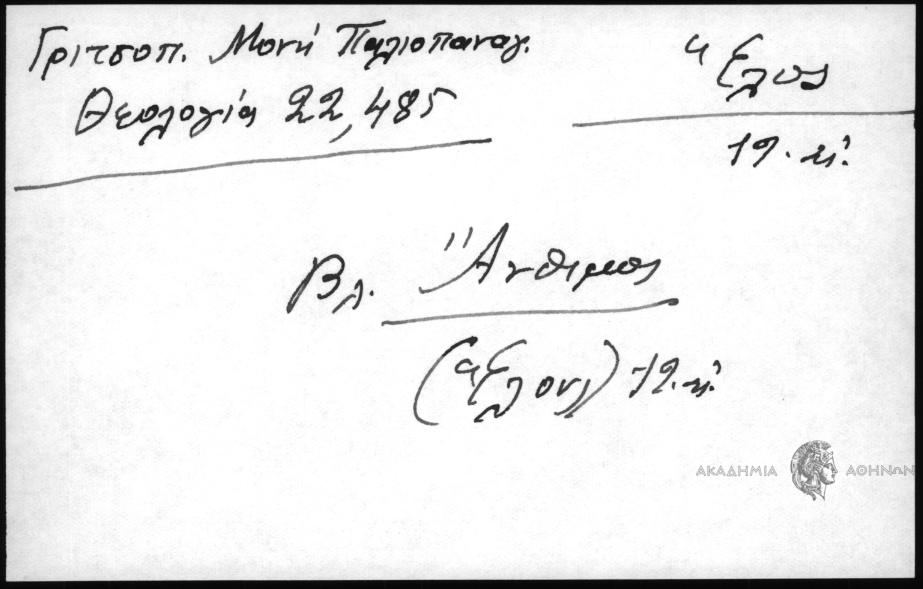 Γριτσοπ. Μονή Παλιοπαναγ.
Θεολογία 22,485
Ἕλος
19. μ.
Βλ. Ἄνθιμος
(Ἕλους) 19. μ.
ΑΚΑΔΗΜΙΑ ΑΘΗΝΩΝ